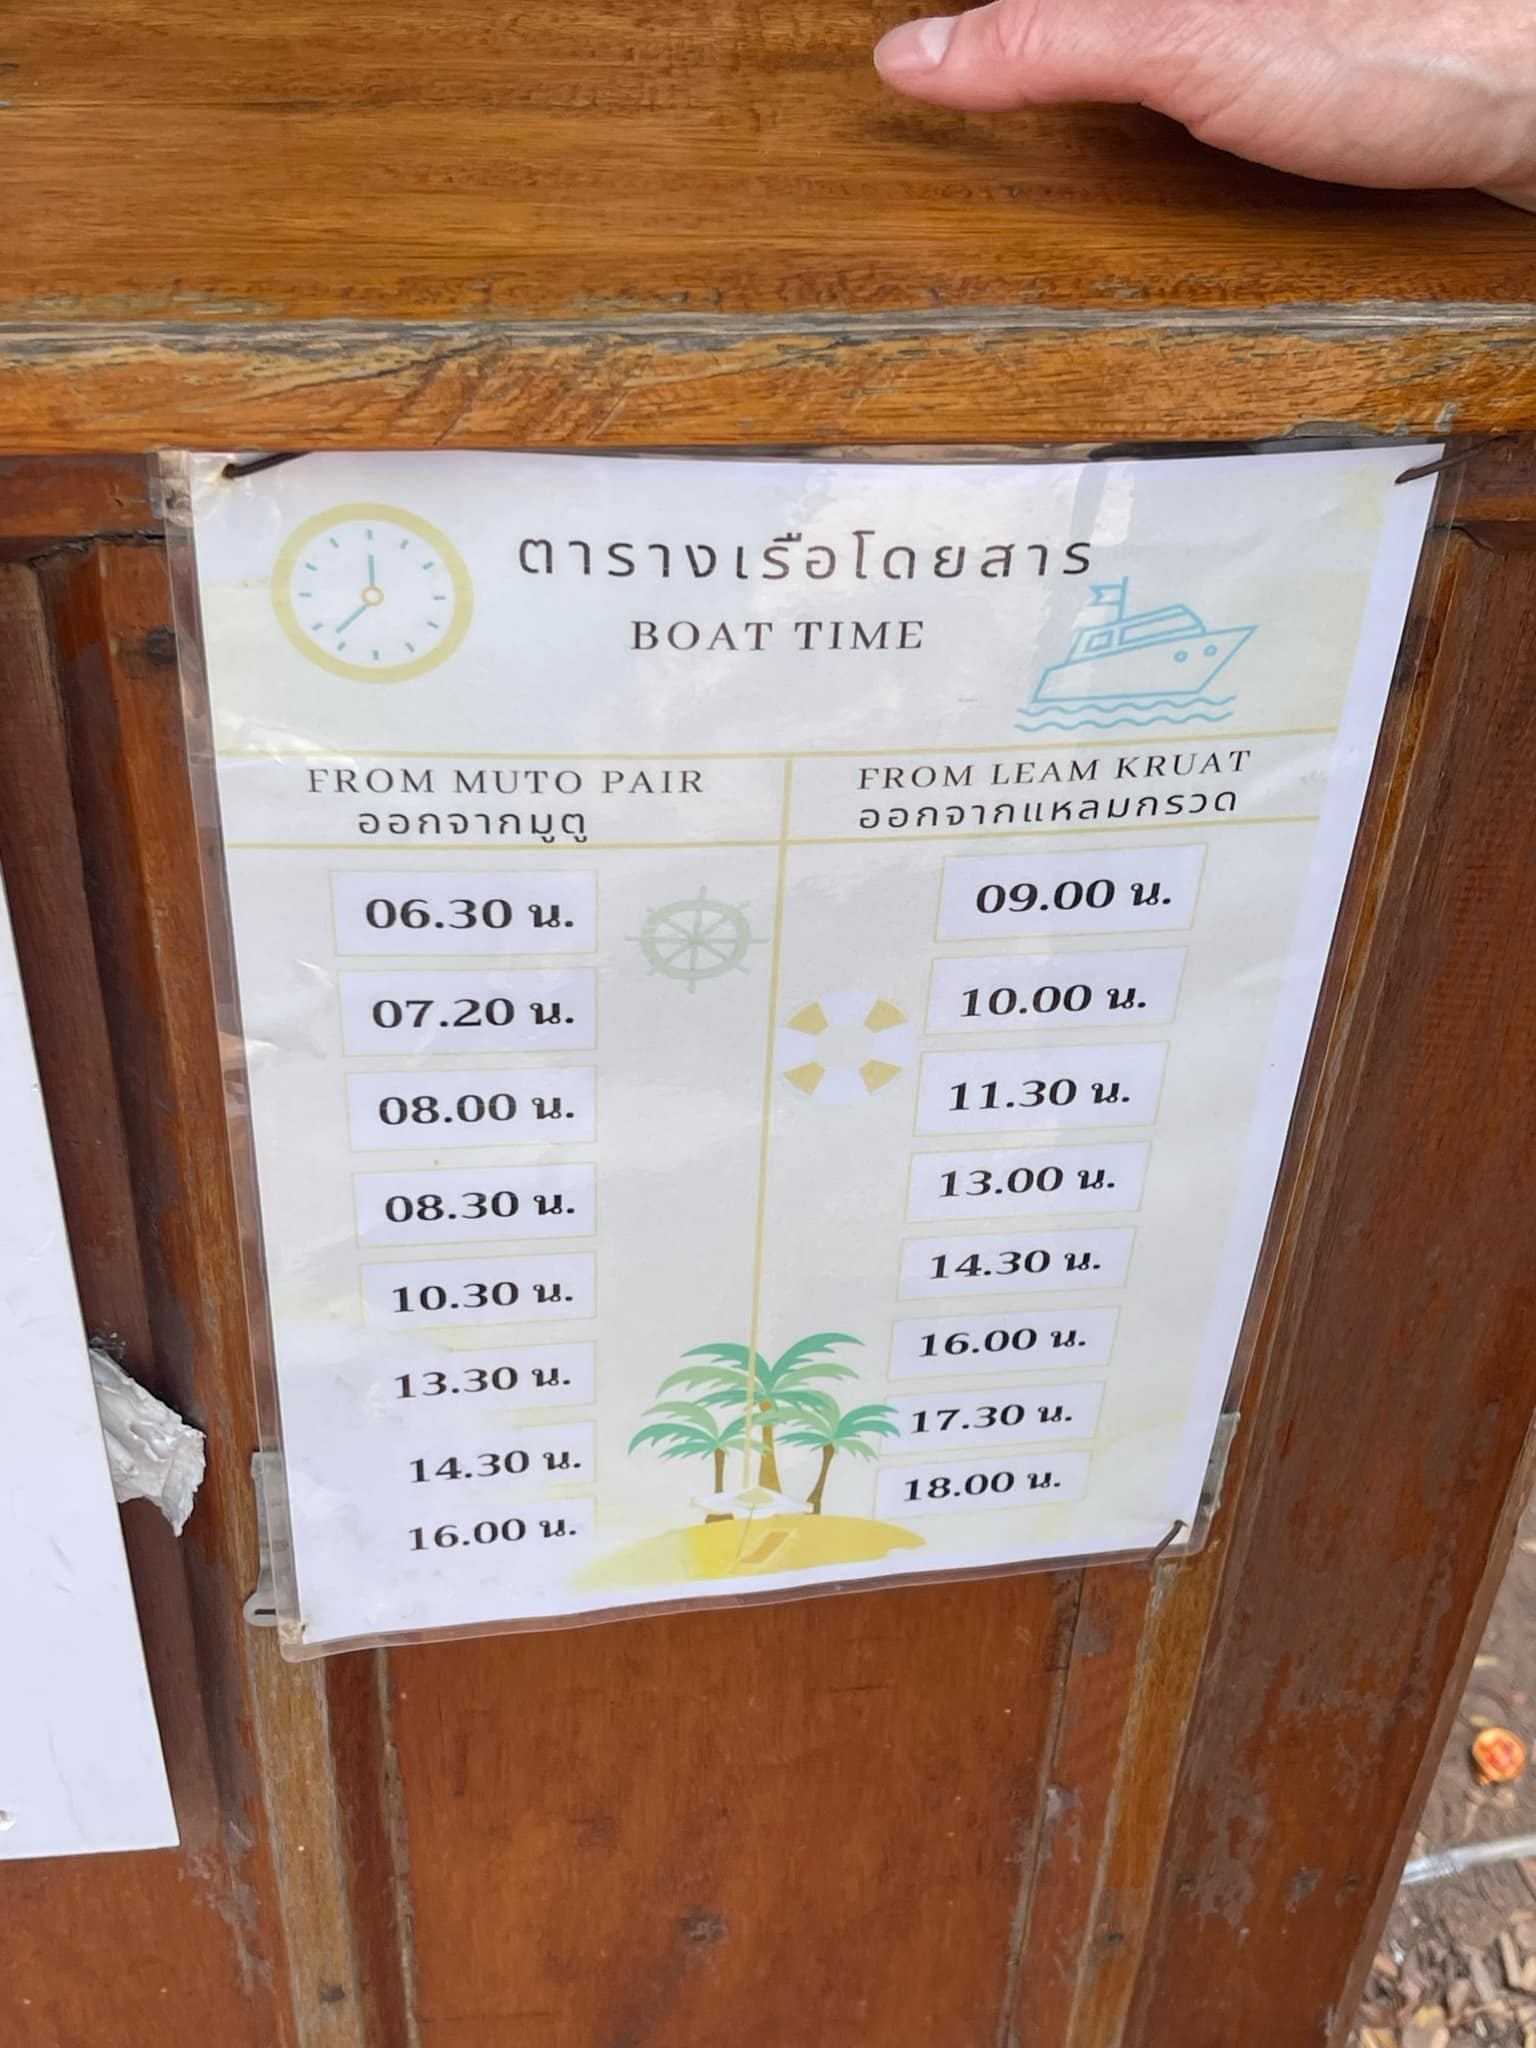 ตารางเรือโดยสาร
BOAT TIME
FROM MUTO PAIR
ออกจากมูตู
06.30 น.
07.20 น.
08.00 น.
08.30 น.
10.30 น.
13.30 น.
14.30 น.
16.00 น.
FROM LEAM KRUAT
ออกจากแหลมกรวด
09.00 น.
10.00 น.
11.30 น.
13.00 น.
14.30 น.
16.00 น.
17.30 น.
18.00 น.